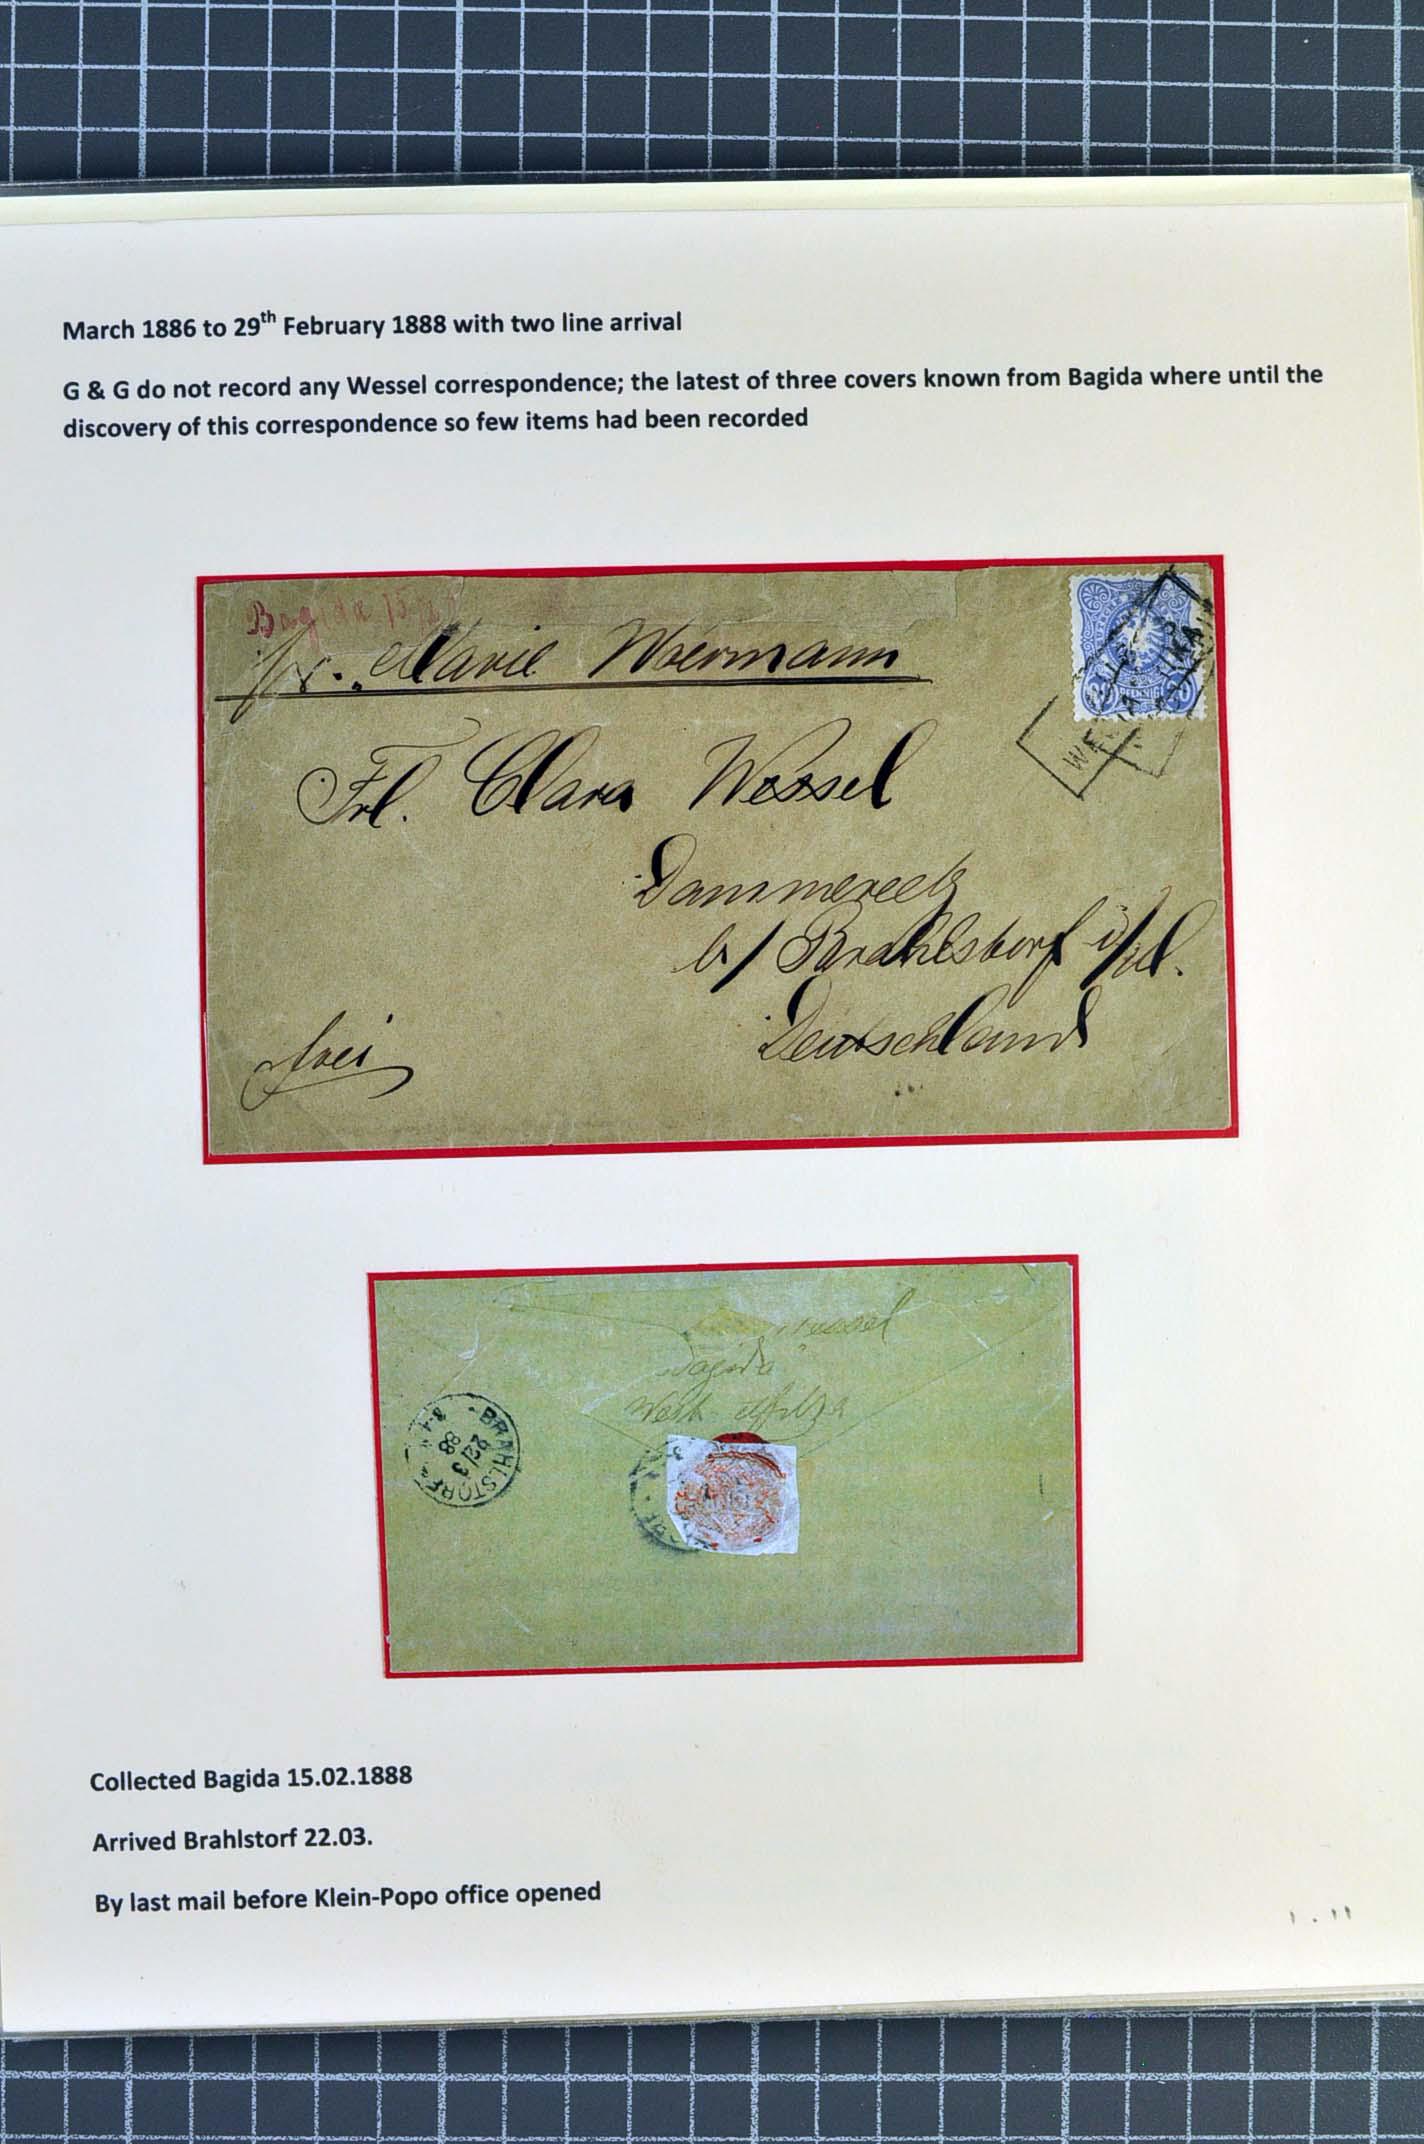 March 1886 to 29th February 1888 with two line arrival
G & G do not record any Wessel correspondence; the latest of three covers known from Bagida where until the
discovery of this correspondence so few items had been recorded
Bagida 15/2
pr. „Marie Woermann
Frl. Clara Wessel
Dammereetz
b/ Brahlstorf i/M.
Deutschland
frei
PFENNIG 20
Wessel
Bagida
West Afrika
BRAHLSTORF
22/3
88
Collected Bagida 15.02.1888
Arrived Brahlstorf 22.03.
By last mail before Klein-Popo office opened